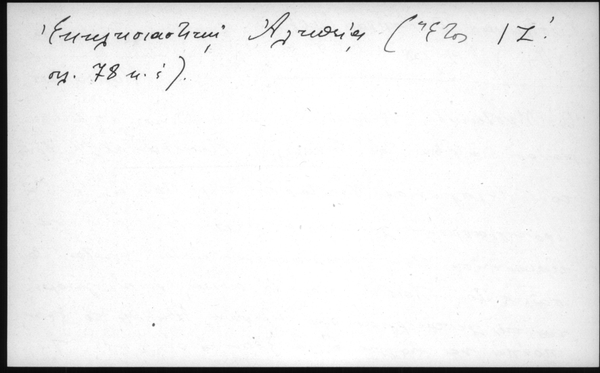 Ἐκκλησιαστικῇ Ἀληθείᾳ (Ἔτος ΙΖ΄.
σελ. 78 κ. ἑ).